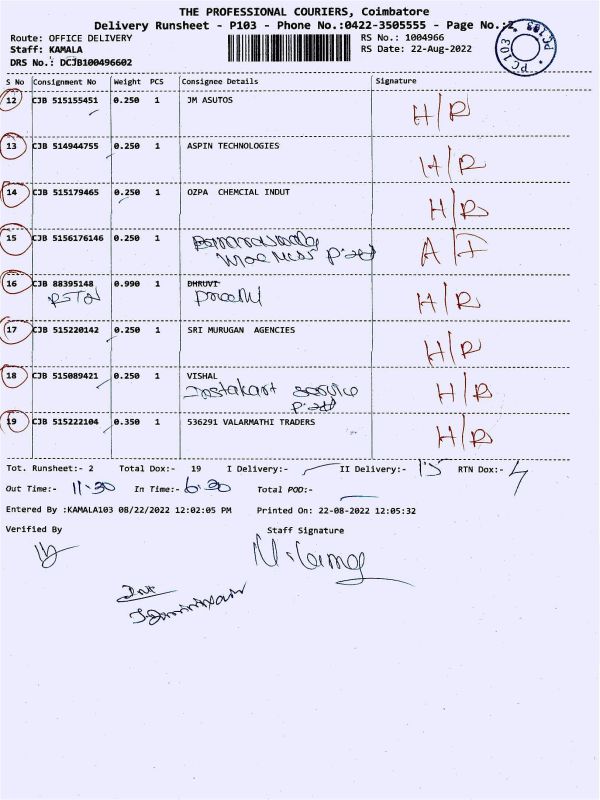 THE PROFESSIONAL COURIERS, Coimbatore
Delivery Runsheet - P103 - Phone No.:0422-3505555 - Page No.:2
Route: OFFICE DELIVERY RS No.: 1004966
Staff: KAMALA RS Date: 22-Aug-2022
DRS No.: DCJB100496602
PC103
S No Consignment No Weight PCS Consignee Details Signature
12 CJB 515155451 0.250 1 JM ASUTOS H/R
13 CJB 514944755 0.250 1 ASPIN TECHNOLOGIES H/R
14 CJB 515179465 0.250 1 OZPA CHEMCIAL INDUT H/R
15 CJB 5156176146 0.250 1 A/F
16 CJB 88395148 0.990 1 DHRUVI H/R
17 CJB 515220142 0.250 1 SRI MURUGAN AGENCIES H/R
18 CJB 515089421 0.250 1 VISHAL H/R
Instakart service
19 CJB 515222104 0.350 1 536291 VALARMATHI TRADERS H/R
Tot. Runsheet:- 2 Total Dox:- 19 I Delivery:- II Delivery:- 15 RTN Dox:- 4
Out Time:- 11-30 In Time:- 6-30 Total POD:-
Entered By :KAMALA103 08/22/2022 12:02:05 PM Printed On: 22-08-2022 12:05:32
Verified By Staff Signature